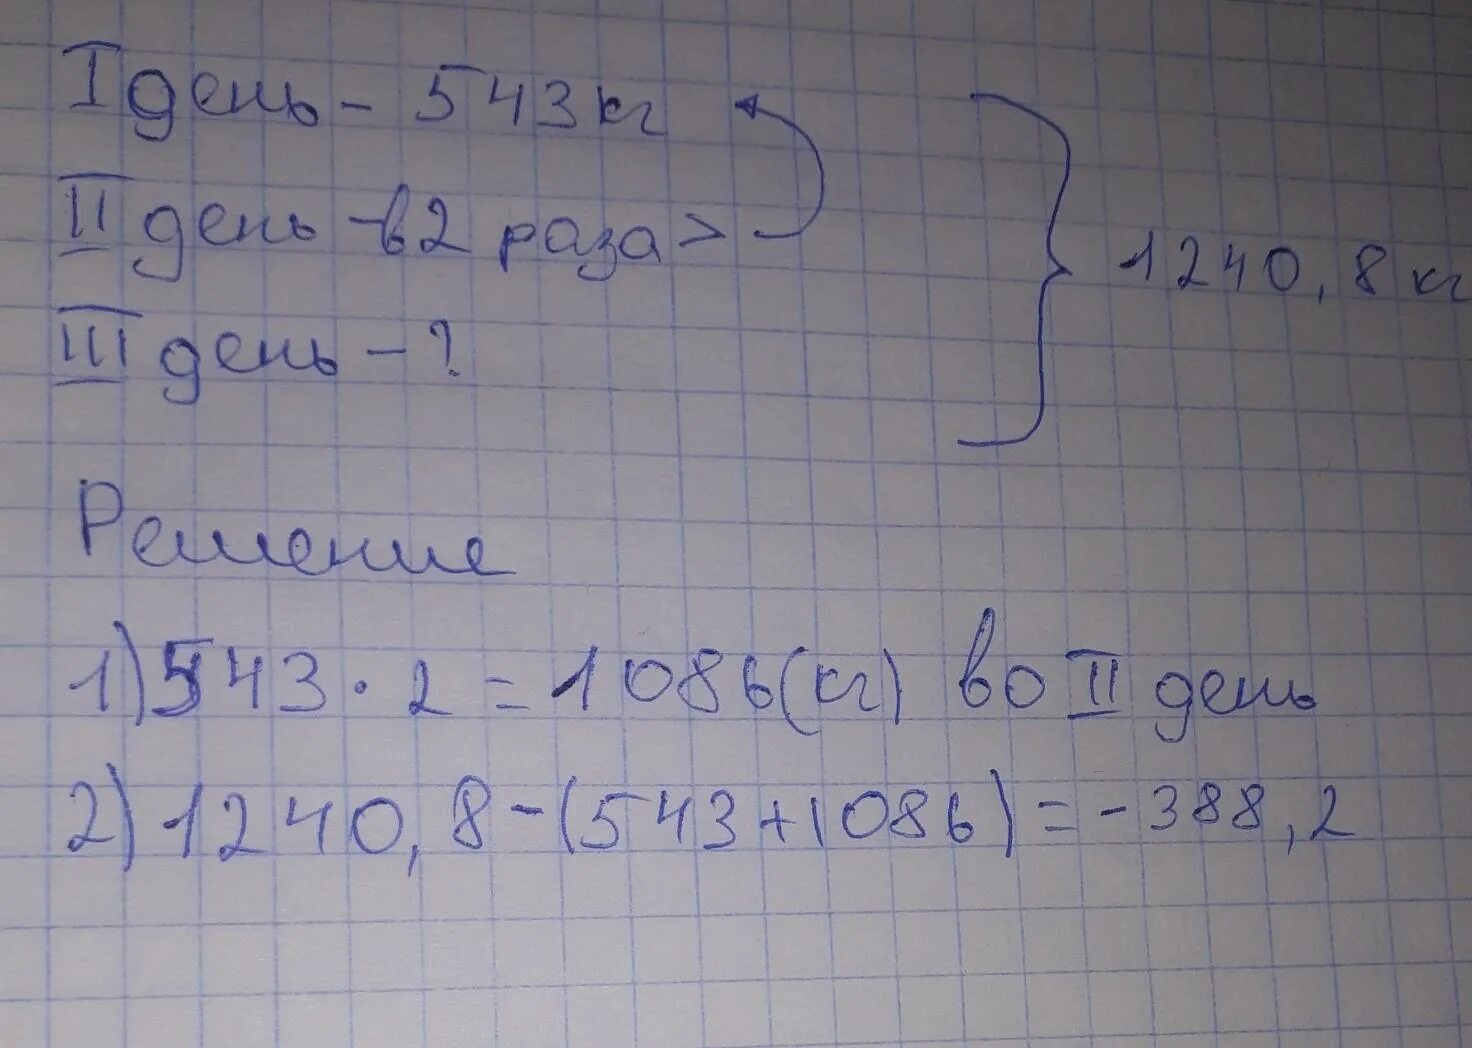 I день - 543 кг
II день - в 2 раза >
1240,8 кг
III день - ?
Решение
1) 543 · 2 = 1086 (кг) во II день
2) 1240,8 - (543 + 1086) = - 388,2